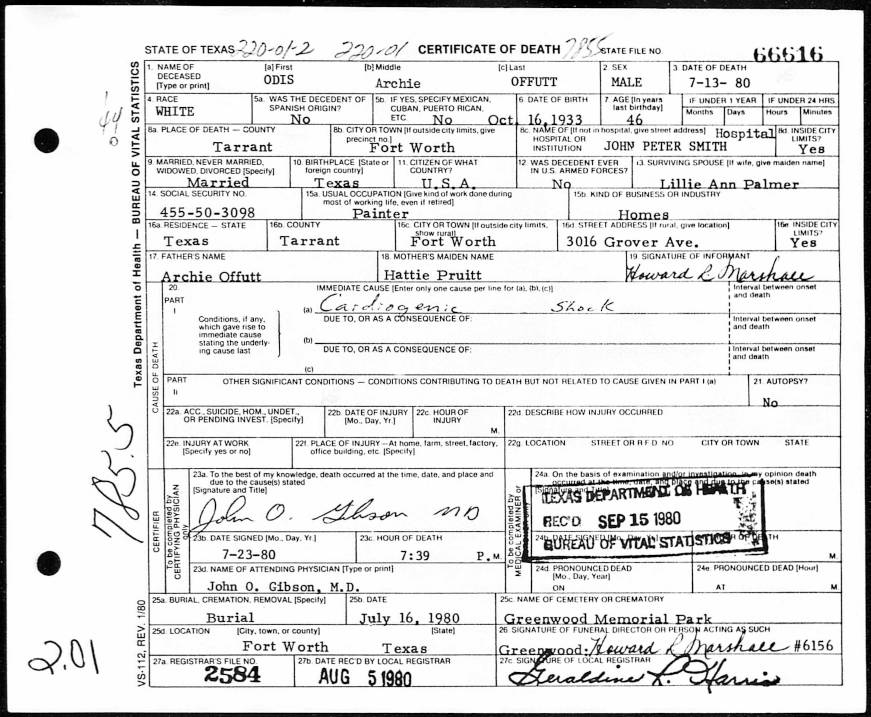 STATE OF TEXAS 320-01-2 220-01 CERTIFICATE OF DEATH 7855 STATE FILE NO. 66616
1. NAME OF DECEASED [Type or print] [a] First ODIS [b] Middle Archie [c] Last OFFUTT 2. SEX MALE 3. DATE OF DEATH 7-13- 80
4. RACE WHITE 5a. WAS THE DECEDENT OF SPANISH ORIGIN? No 5b. IF YES, SPECIFY MEXICAN, CUBAN, PUERTO RICAN, ETC No 6. DATE OF BIRTH Oct. 16,1933 7. AGE [In years last birthday] 46 IF UNDER 1 YEAR Months Days IF UNDER 24 HRS. Hours Minutes
8a. PLACE OF DEATH — COUNTY Tarrant 8b. CITY OR TOWN [If outside city limits, give precinct no.] Fort Worth 8c. NAME OF [If not in hospital, give street address] HOSPITAL OR INSTITUTION JOHN PETER SMITH Hospital 8d. INSIDE CITY LIMITS? Yes
9. MARRIED, NEVER MARRIED, WIDOWED, DIVORCED [Specify] Married 10. BIRTHPLACE [State or foreign country] Texas 11. CITIZEN OF WHAT COUNTRY? U.S.A. 12. WAS DECEDENT EVER IN U.S. ARMED FORCES? No 13. SURVIVING SPOUSE [If wife, give maiden name] Lillie Ann Palmer
14. SOCIAL SECURITY NO. 455-50-3098 15a. USUAL OCCUPATION [Give kind of work done during most of working life, even if retired] Painter 15b. KIND OF BUSINESS OR INDUSTRY Homes
16a. RESIDENCE — STATE Texas 16b. COUNTY Tarrant 16c. CITY OR TOWN [If outside city limits, show rural] Fort Worth 16d. STREET ADDRESS [If rural, give location] 3016 Grover Ave. 16e INSIDE CITY LIMITS? Yes
17. FATHER'S NAME Archie Offutt 18. MOTHER'S MAIDEN NAME Hattie Pruitt 19. SIGNATURE OF INFORMANT Howard R Marshall
20. PART I IMMEDIATE CAUSE [Enter only one cause per line for (a), (b), (c)] Interval between onset and death
(a) Cardiogenic Shock
Conditions, if any, which gave rise to immediate cause stating the underlying cause last
DUE TO, OR AS A CONSEQUENCE OF: Interval between onset and death
(b)
DUE TO, OR AS A CONSEQUENCE OF: Interval between onset and death
(c)
PART II OTHER SIGNIFICANT CONDITIONS — CONDITIONS CONTRIBUTING TO DEATH BUT NOT RELATED TO CAUSE GIVEN IN PART I (a) 21. AUTOPSY? No
22a. ACC., SUICIDE, HOM., UNDET., OR PENDING INVEST. [Specify] 22b. DATE OF INJURY [Mo., Day, Yr.] 22c. HOUR OF INJURY M. 22d. DESCRIBE HOW INJURY OCCURRED
22e. INJURY AT WORK [Specify yes or no] 22f. PLACE OF INJURY—At home, farm, street, factory, office building, etc. [Specify] 22g. LOCATION STREET OR R F D NO CITY OR TOWN STATE
23a. To the best of my knowledge, death occurred at the time, date, and place and due to the cause(s) stated [Signature and Title]
John O. Gibson MD
24a. On the basis of examination and/or investigation, in my opinion death occurred at the time, date, and place and due to the cause(s) stated
TEXAS DEPARTMENT OF HEALTH
REC'D SEP 15 1980
BUREAU OF VITAL STATISTICS
23b. DATE SIGNED [Mo., Day, Yr.] 7-23-80 23c. HOUR OF DEATH 7:39 P. M. 24b. DATE SIGNED M.
23d. NAME OF ATTENDING PHYSICIAN [Type or print] John O. Gibson, M.D. 24d. PRONOUNCED DEAD [Mo., Day, Year] ON 24e. PRONOUNCED DEAD [Hour] AT M
25a. BURIAL, CREMATION, REMOVAL [Specify] Burial 25b. DATE July 16, 1980 25c. NAME OF CEMETERY OR CREMATORY Greenwood Memorial Park
25d. LOCATION [City, town, or county] Fort Worth [State] Texas 26 SIGNATURE OF FUNERAL DIRECTOR OR PERSON ACTING AS SUCH Greenwood: Howard R Marshall #6156
27a. REGISTRAR'S FILE NO. 2584 27b. DATE REC'D BY LOCAL REGISTRAR AUG 5 1980 27c. SIGNATURE OF LOCAL REGISTRAR Geraldine L. Harris
Texas Department of Health — BUREAU OF VITAL STATISTICS
VS-112, REV. 1/80
CAUSE OF DEATH
CERTIFIER
To be completed by CERTIFYING PHYSICIAN only
To be completed by MEDICAL EXAMINER or
785.5
2.01